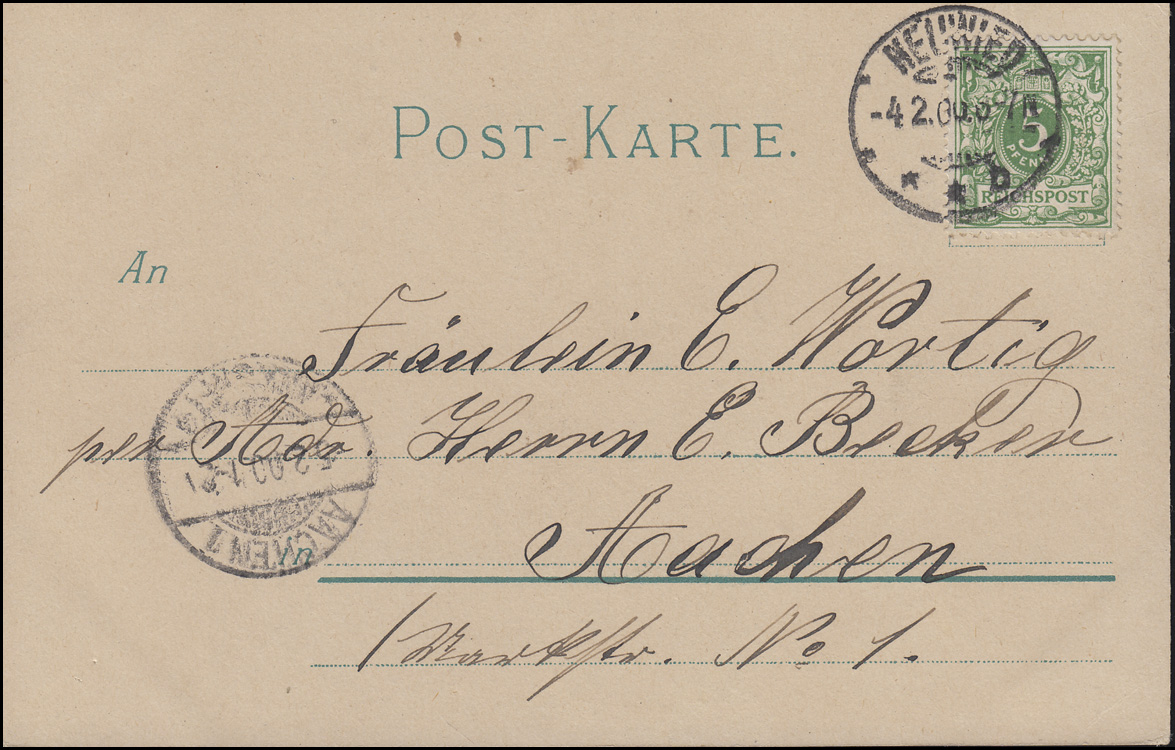 POST-KARTE.
NEUWIED
-4 2.00.
b
5
PFENNIG
REICHSPOST
An
Fräulein E. Wortig
per Adr. Herrn E. Becker
5.2.00.
AACHEN 1
in
Aachen
Marktstr. No 1.